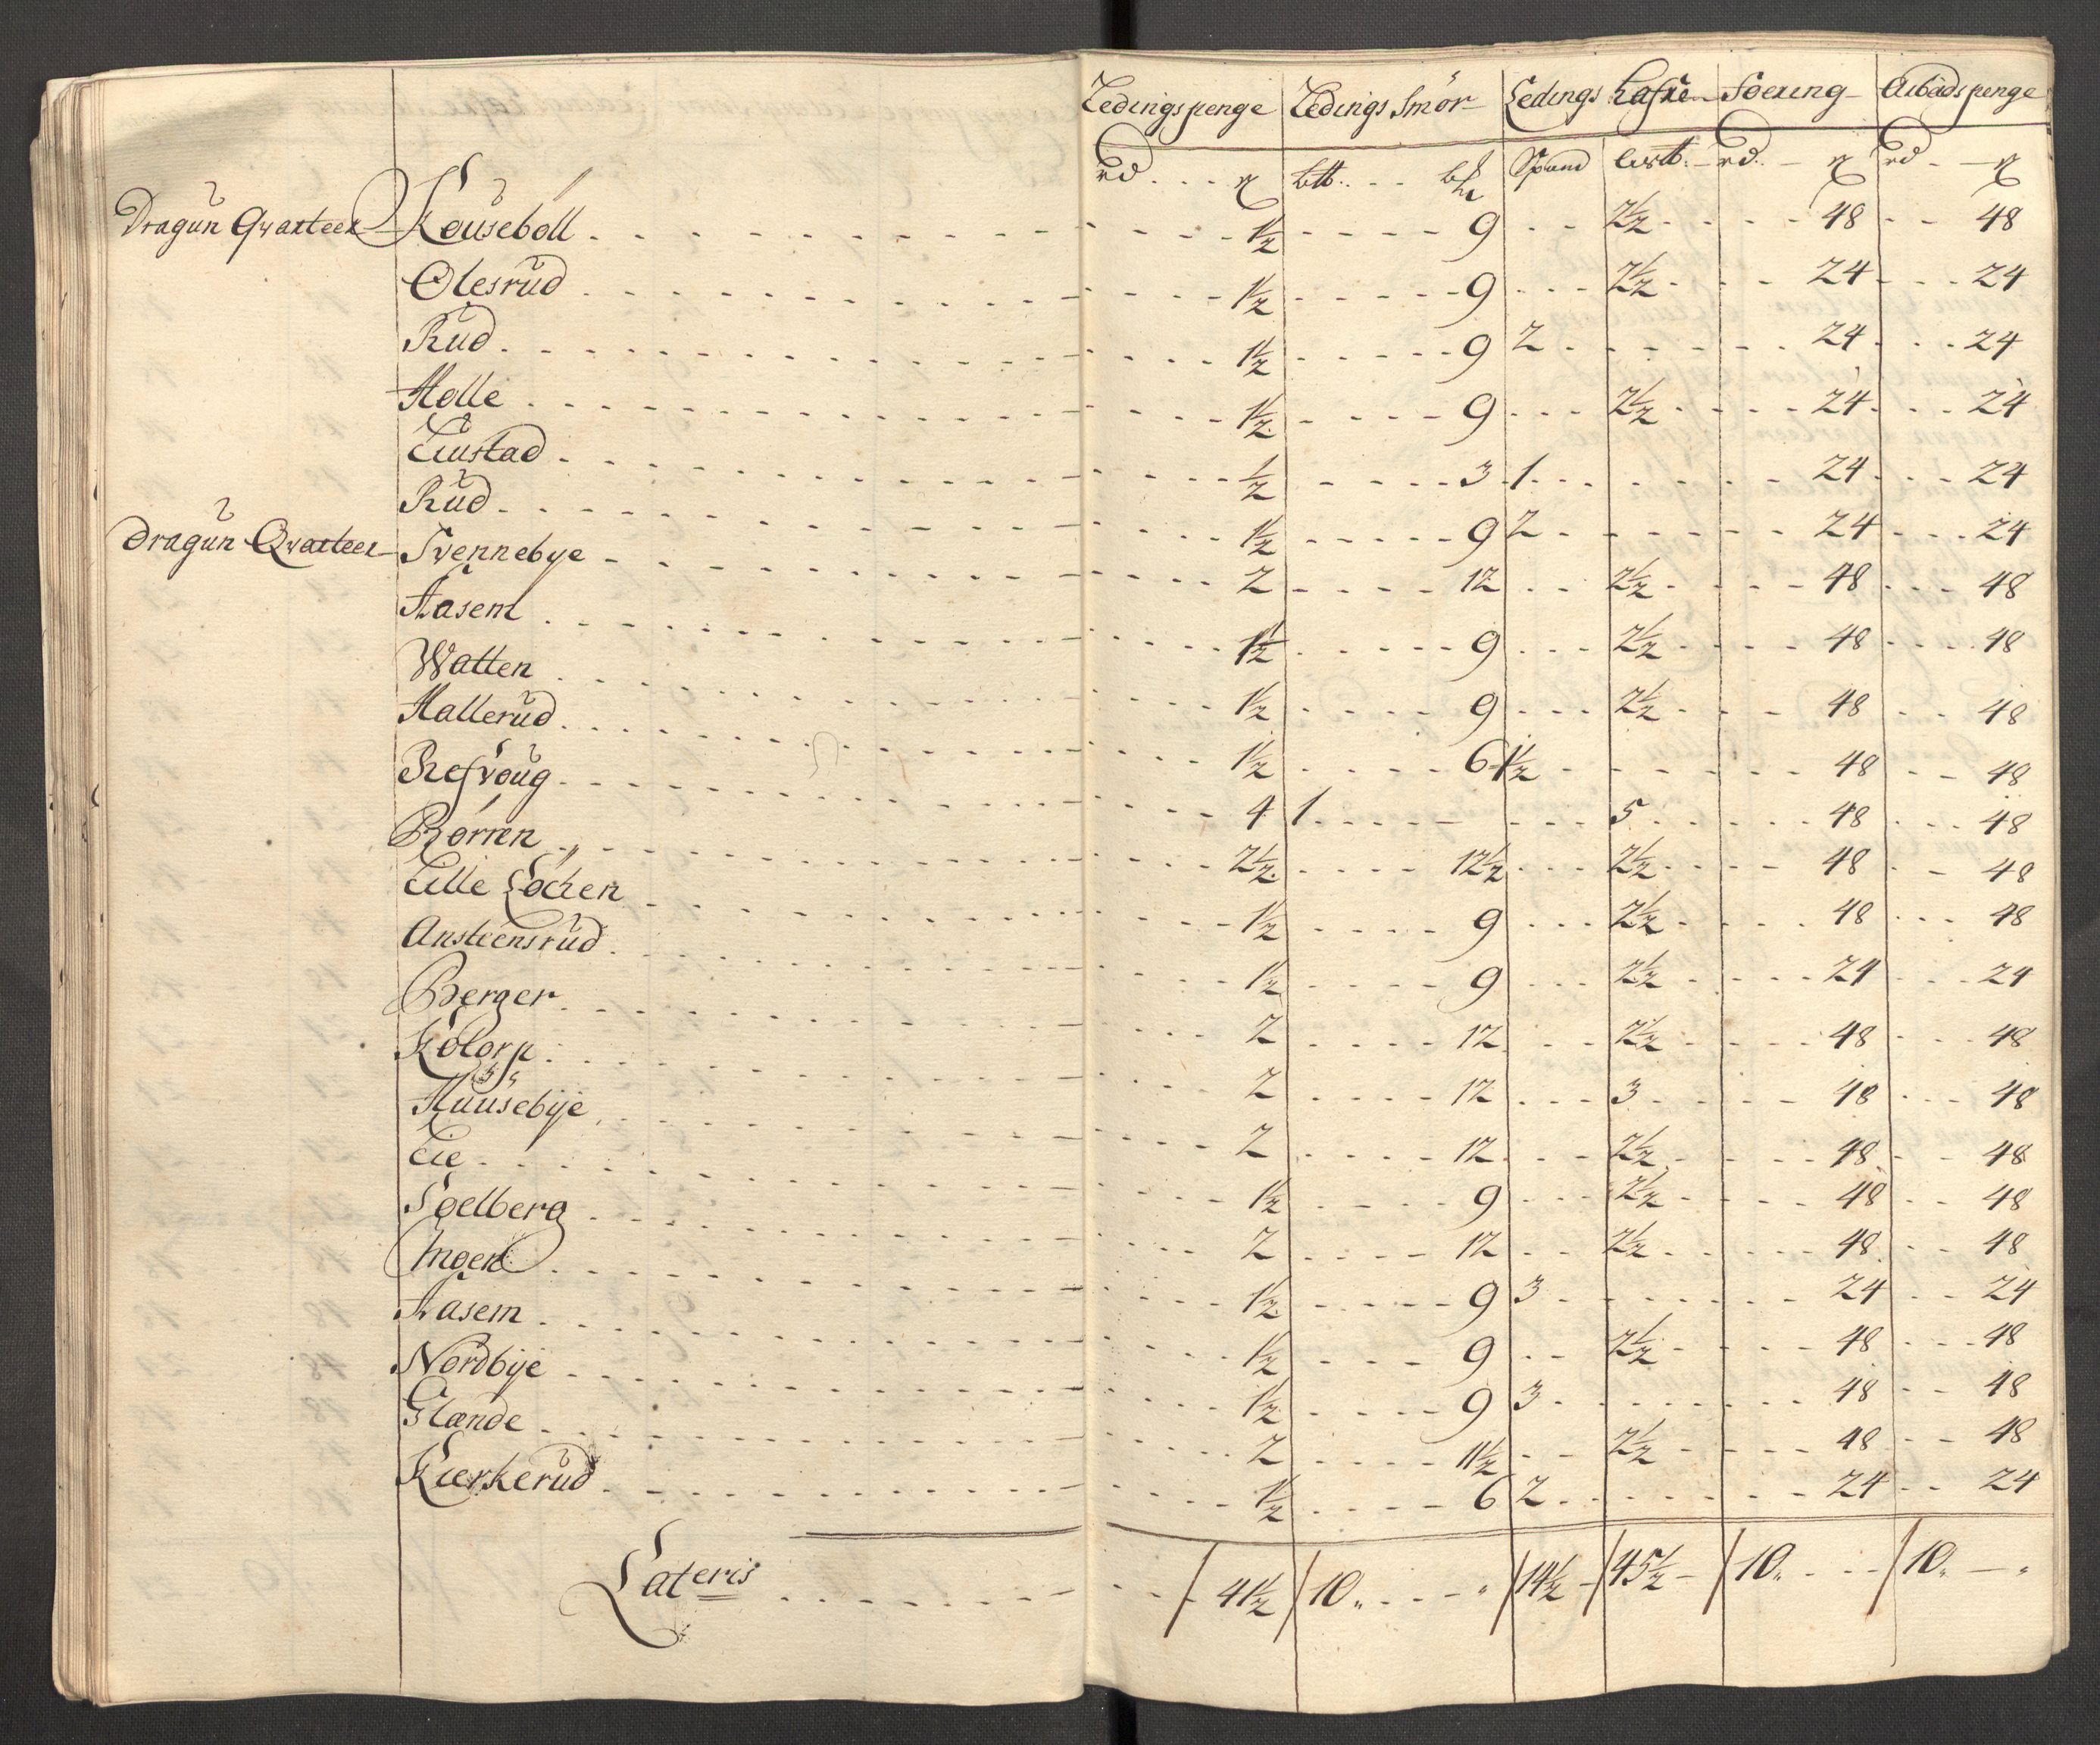 Ledingspenge Ledings Smör Ledings hafre Foering Arbeidspenge
rd ß btt. bk Spand lestb. rd. ß rd ß
Dragun Qvarteer Kousebøll 1½ 9 2½ 48 48
Olesrud 1½ 9 2½ 24 24
Rud 1½ 9 2 24 24
Holle 1½ 9 2½ 24 24
Liustad ½ 3 1 24 24
Rud 1½ 9 2 24 24
Dragun Qvarteer Svennebye 2 12 2½ 48 48
Aasem 1½ 9 2½ 48 48
Watten 1½ 9 2½ 48 48
Hallerud 1½ 6 1½ 48 48
Refsoug 4 1 5 48 48
Børren 2½ 12½ 2½ 48 48
Lille Løcken 1½ 9 2½ 48 48
Ansteensrud 1½ 9 2½ 24 24
Berger 2 12 2½ 48 48
Kolorp 2 12 3 48 48
Huusebye 2 12 2½ 48 48
Lie 1½ 9 2½ 48 48
Soelberg 2 12 2½ 48 48
Ingen 1½ 9 3 24 24
Aasem 1½ 9 2½ 48 48
Nordbye 1½ 9 3 48 48
Glænde 2 11½ 2½ 48 48
Kierkerud 1½ 6 2 24 24
Lateris 41½ 10 14½ 45½ 10 10